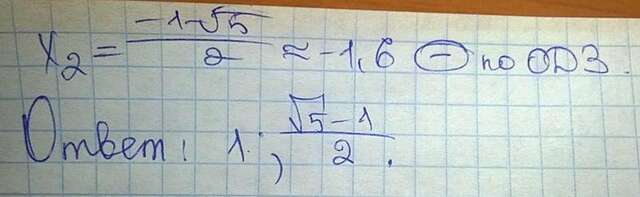 x₂ = (-1-√5)/2 ≈ -1,6 ⊖ по ОДЗ.
Ответ: 1; (√5-1)/2.